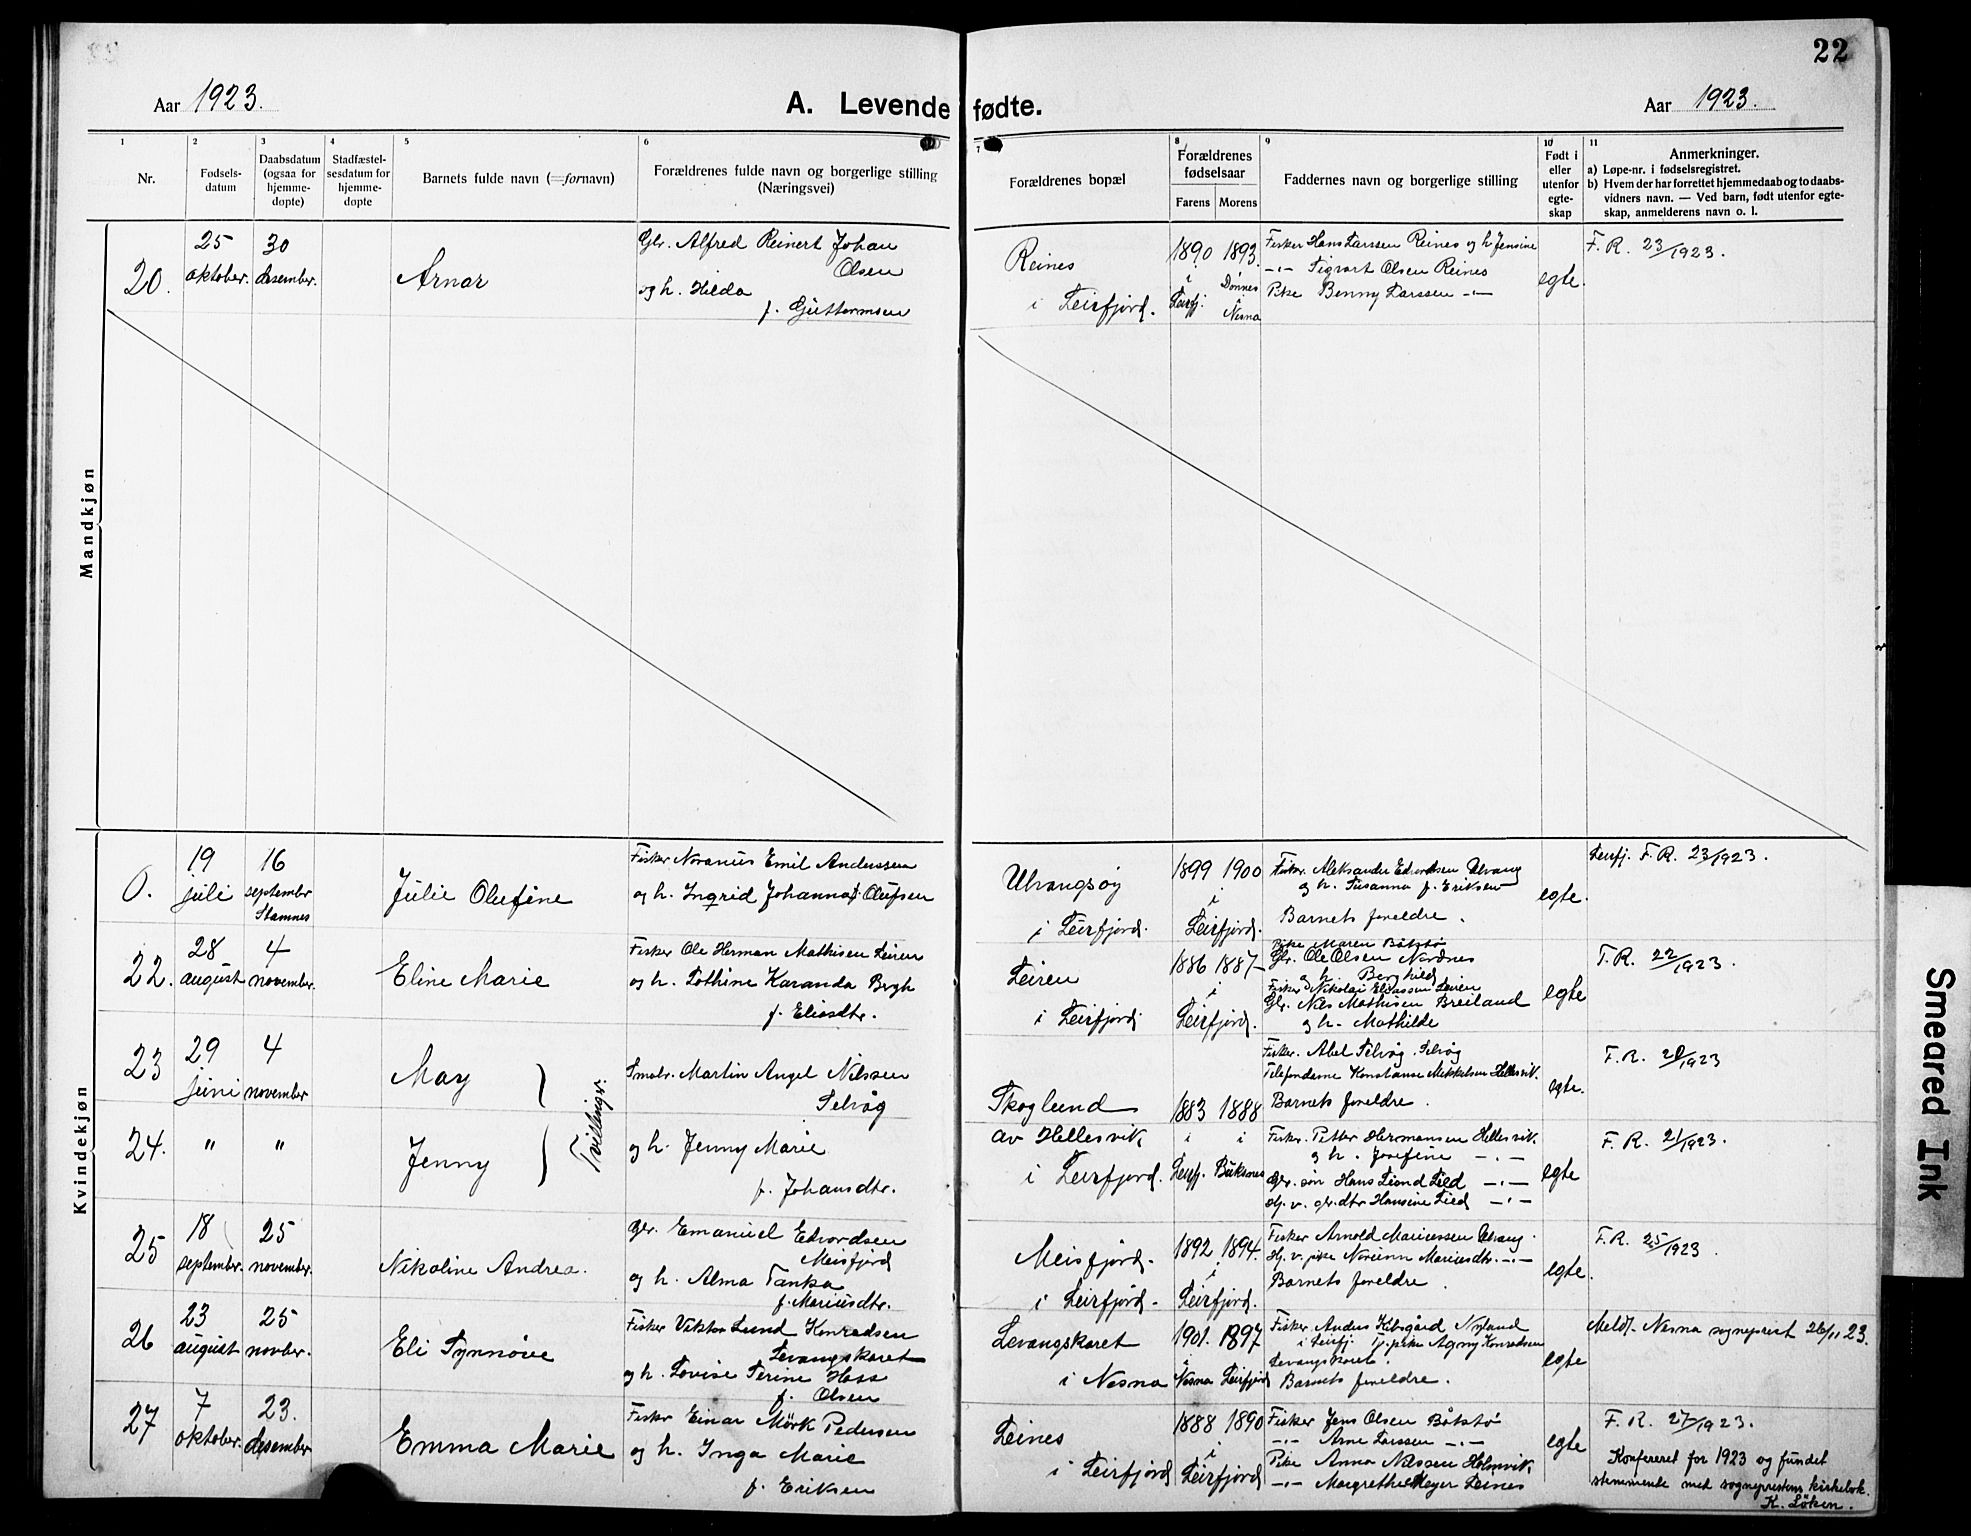 22
Aar 1923.
A. Levende fødte.
Aar 1923.
1
Nr.
2
Fødsels-
datum
3
Daabsdatum
(ogsaa for
hjemme-
døpte)
4
Stadfæstel-
sesdatum for
hjemme-
døpte
5
Barnets fulde navn (=fornavn)
6
Forældrenes fulde navn og borgerlige stilling
(Næringsvei)
7
Forældrenes bopæl
8
Forældrenes
fødselsaar
Farens
Morens
9
Faddernes navn og borgerlige stilling
10
Født i
eller
utenfor
egte-
skap
11
Anmerkninger.
a) Løpe-nr. i fødselsregistret.
b) Hvem der har forrettet hjemmedaab og to daabs-
vidners navn. — Ved barn, født utenfor egte-
skap, anmelderens navn o. l.
Mandkjøn
20.
25
oktober.
30
desember.
Arnar
Gbr. Alfred Reinert Johan
Olsen
og h. Hilda
f. Guttormsen
Reines
i Leirfjord.
1890
i
Leirfj.
1893.
Dønnes
i
Nesna
Fisker Hans Larssen Reines og h. Jensine
-"- Sigvart Olsen Reines
Pike Benny Larssen -"-
egte.
F. R. 23/1923.
Kvindekjøn
0.
19
juli
16
septembr
Stamnes
Julie Olufine
Fisker Noranius Emil Anderssen
og h. Ingrid Johanna f. Olufsen
Ulvangsøy
i Leirfjord.
1899 1900
i
Leirfjord.
Fisker Aleksander Edvardsen Ulvang
og h. Susanna f. Eriksen
Barnets foreldre.
egte.
Leirfj. F. R. 23/1923.
22.
28
august
4
november.
Eline Marie
Fisker Ole Herman Mathisen Leiren
og h. Lothine Karanda Bergh
f. Eliasdtr.
Leiren
i Leirfjord
1886 1887
i
Leirfjord.
Pike Maren Båtstø
Gbr. Ole Olsen Nordnes
og h. Berghild
Fisker Nikolai Eliassen Leiren
Gbr. Nils Mathisen Breiland
og h. Mathilde
egte
F. R. 22/1923.
23
29
juni
4
november
May
Smabr. Martin Angel Nilssen
Selvåg
Skoglund
1883 1888
Fisker. Abel Selvåg. Selvåg
Telefondame Konstanse Mikkelsen Hellesvik.
Barnets foreldre.
egte.
F. R. 20/1923
Tvillinger.
24.
"
"
Jenny
og h. Jenny Marie
f. Johansdtr.
av Hellesvik
i Leirfjord.
i i
Leirfj. Buksnes
Fisker. Petter Hermansen Hellesvik
og h. Josefine -"-
Gbr. søn Hans Leond Lied -"-
Hj. v. gbr. dtr Hansine Lied -"-
egte
F. R. 21/1923.
25
18
september.
25
november.
Nikoline Andrea.
Gbr. Emanuel Edvardsen
Meisfjord
og h. Alma Tanka
f. Mariusdtr.
Meisfjord.
i Leirfjord.
1892 1894.
i
Leirfjord.
Fisker Arnold Mariussen Ulvang.
Hj. v. pike Noreinn Mariusdtr. -"-
Barnets foreldre.
egte.
F. R. 25/1923.
26
23
august
25
novber.
Eli Synnøve
Fisker Viktor Lund Konradsen
Levangskaret
og h. Lovise Serine Hass
f. Olsen
Levangskaret
i Nesna
1901. 1897
i
Nesna Leirfjord
Fisker Anders Kibsgård Nyland
i Leirfj. Tj. pike Agny Konradsen
Levangskaret.
Barnets foreldre.
egte
Meldt Nesna sogneprest 26/11 23.
27
7
oktober.
23.
desember
Emma Marie
Fisker Einar Mörk Pedersen
og h. Inga Marie
f. Eriksen
Leines
i Leirfjord
1888 1890
i
Leirfjord
Fisker Jens Olsen Båtstø
-"- Arne Larssen -"-
Pike Anna Nilssen Holmvik
-"- Margrethe Meyer Leines
egte
F. R. 27/1923.
Konfereret for 1923 og fundet
stemmende med sogneprestens kirkebok.
K. Löken.
Smeared Ink